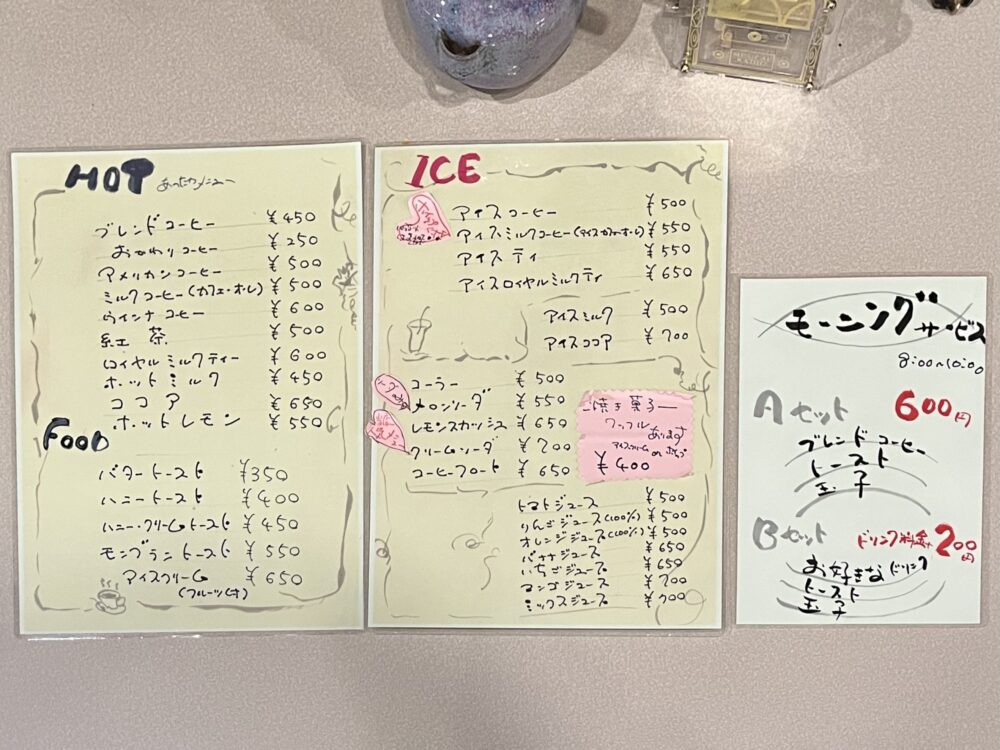 HOT あったかメニュー
ブレンドコーヒー ¥450
おかわりコーヒー ¥250
アメリカンコーヒー ¥500
ミルクコーヒー(カフェ・オ・レ) ¥500
ウインナコーヒー ¥600
紅茶 ¥500
ロイヤルミルクティー ¥600
ホットミルク ¥450
ココア ¥650
ホットレモン ¥550
FOOD
バタートースト ¥350
ハニートースト ¥400
ハニー・クリームトースト ¥450
モンブラントースト ¥550
アイスクリーム ¥650
(フルーツ付)
ICE
アイスコーヒー ¥500
アイスミルクコーヒー(アイスカフェ・オ・レ) ¥550
アイスティ ¥550
アイスロイヤルミルクティ ¥650
アイスミルク ¥500
アイスココア ¥700
コーラー ¥500
メロンソーダ ¥550
レモンスカッシュ ¥650
クリームソーダ ¥700
コーヒーフロート ¥650
焼き菓子
ワッフル
あります
アイスクリーム or
¥400
トマトジュース ¥500
りんごジュース(100%) ¥500
オレンジジュース(100%) ¥500
バナナジュース ¥650
いちごジュース ¥650
マンゴジュース ¥700
ミックスジュース ¥700
モーニングサービス
8:00~10:00
Aセット 600円
ブレンドコーヒー
トースト
玉子
Bセット ドリンク料金+200円
お好きなドリンク
トースト
玉子